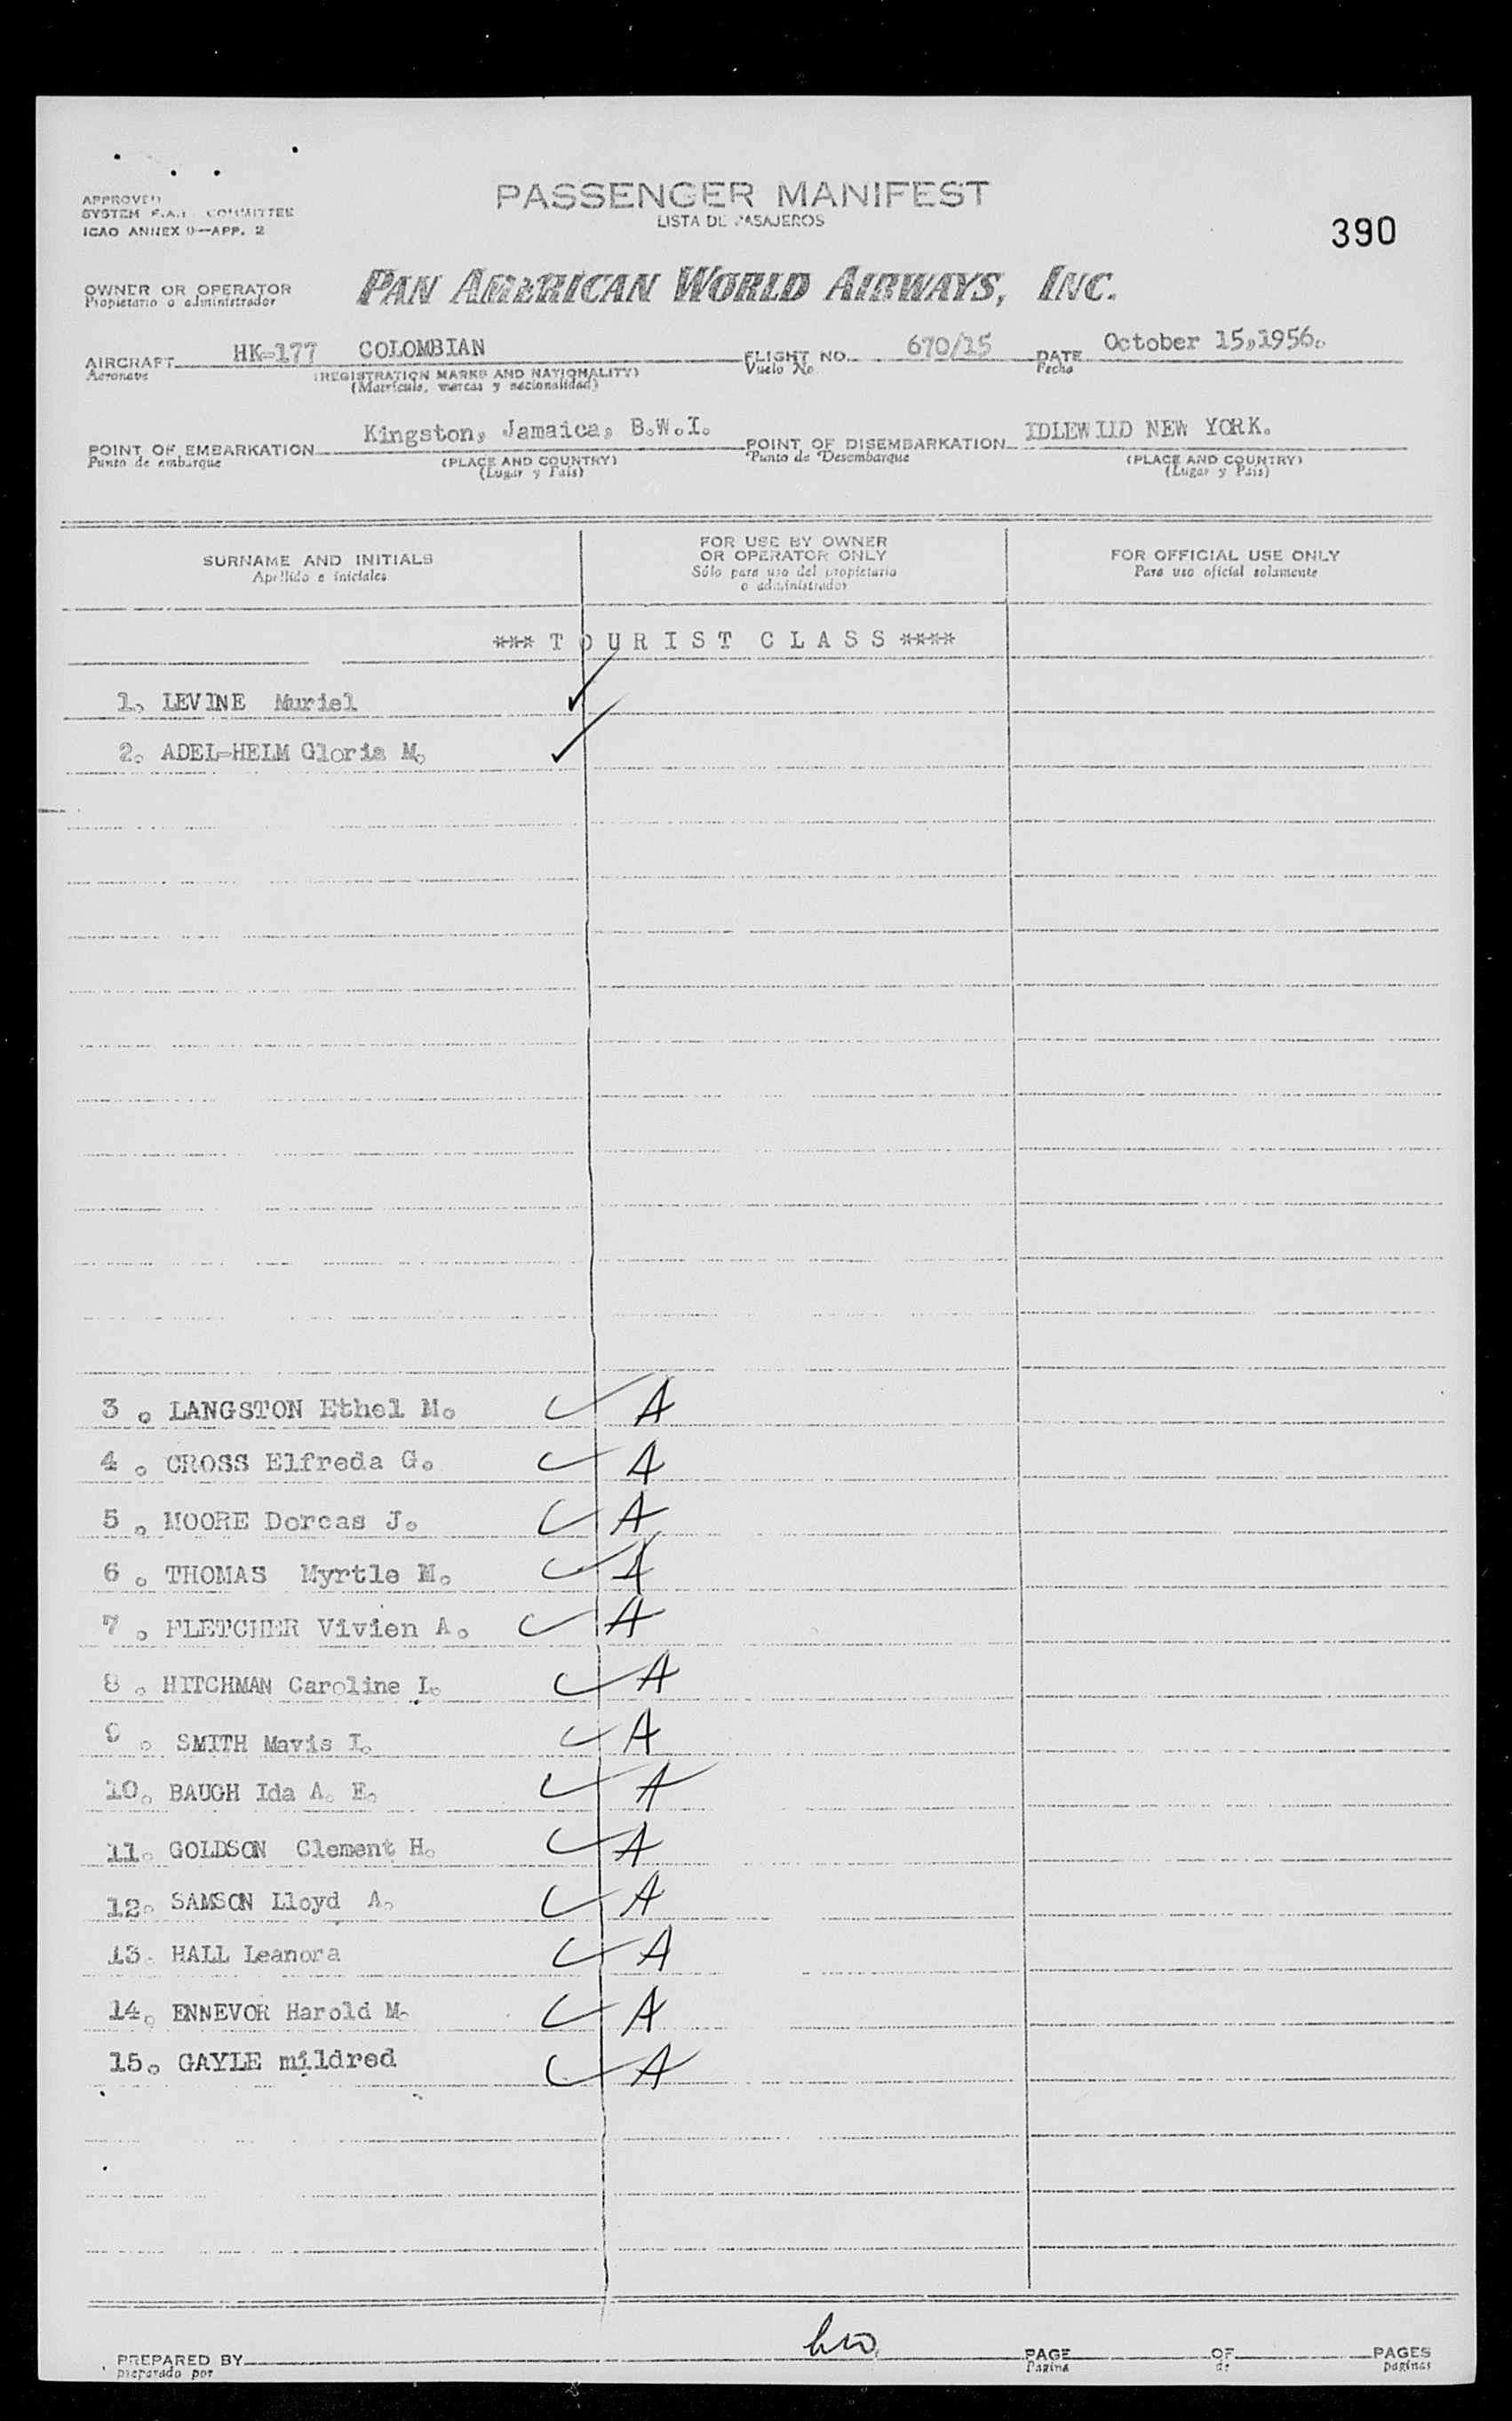 PASSENGER MANIFEST
LISTA DE PASAJEROS
APPROVED
SYSTEM F.A.I. COMMITTEE
ICAO ANNEX 9—APP. 2
390
OWNER OR OPERATOR
Propietario o administrador
PAN AMERICAN WORLD AIRWAYS, INC.
AIRCRAFT HK-177 COLOMBIAN FLIGHT NO. 670/15 DATE October 15,1956.
Aeronave (REGISTRATION MARKS AND NATIONALITY) Vuelo No. Fecha
(Matrícula, marcas y nacionalidad)
POINT OF EMBARKATION Kingston, Jamaica, B.W.I. POINT OF DISEMBARKATION IDLEWILD NEW YORK.
Punto de embarque (PLACE AND COUNTRY) Punto de Desembarque (PLACE AND COUNTRY)
(Lugar y País) (Lugar y País)
SURNAME AND INITIALS
Apellido e iniciales
FOR USE BY OWNER
OR OPERATOR ONLY
Sólo para uso del propietario
o administrador
FOR OFFICIAL USE ONLY
Para uso oficial solamente
*** T O U R I S T C L A S S ****
1. LEVINE Muriel
2. ADEL-HELM Gloria M.
3 . LANGSTON Ethel M. A
4 . CROSS Elfreda G. A
5 . MOORE Dorcas J. A
6 . THOMAS Myrtle M. A
7 . FLETCHER Vivien A. A
8 . HITCHMAN Caroline I. A
9 . SMITH Mavis I. A
10. BAUGH Ida A. E. A
11. GOLDSON Clement H. A
12. SAMSON Lloyd A. A
13. HALL Leanora A
14. ENNEVOR Harold M. A
15. GAYLE mildred A
PREPARED BY PAGE OF PAGES
preparado por Pagina de paginas